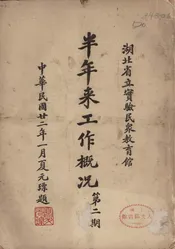 湖北省立實驗民衆教育館
半年来工作概况
第二期
中華民國廿二年一月夏元瑮題